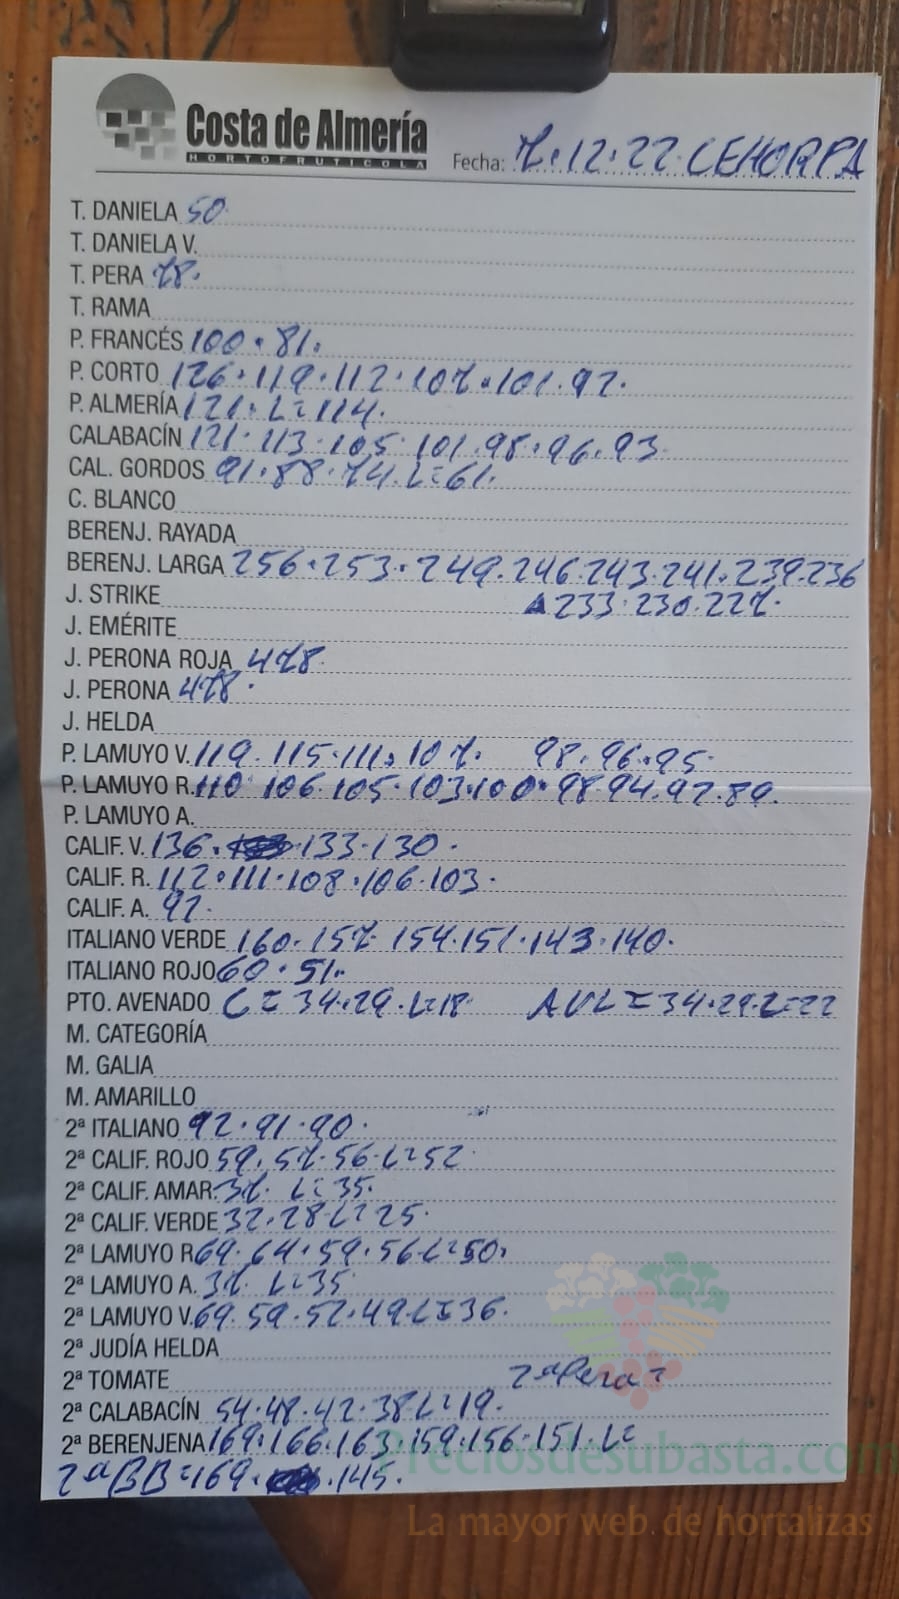 Costa de Almería
HORTOFRUTICOLA
Fecha: 7.12.22 CEHORPA
T. DANIELA 50.
T. DANIELA V.
T. PERA 78.
T. RAMA
P. FRANCÉS 100.81.
P. CORTO 126.119.112.107.101.92.
P. ALMERÍA 121.L=114.
CALABACÍN 121.113.105.101.98.96.93
CAL. GORDOS 91.88.74.L=61.
C. BLANCO
BERENJ. RAYADA
BERENJ. LARGA 256.253.249.246.243.241.239.236
J. STRIKE
233.230.227.
J. EMÉRITE
J. PERONA ROJA 478.
J. PERONA 478.
J. HELDA
P. LAMUYO V. 119.115.111.107. 98.96.95.
P. LAMUYO R. 110 106 105.103.100.98 94.92.89.
P. LAMUYO A.
CALIF. V. 136. 133.130.
CALIF. R. 112.111.108.106.103.
CALIF. A. 92.
ITALIANO VERDE 160.157 154.151.143.140.
ITALIANO ROJO 60.51.
PTO. AVENADO C=34.29.L=18 AVL=34.29.L=22
M. CATEGORÍA
M. GALIA
M. AMARILLO
2ª ITALIANO 92.91.90.
2ª CALIF. ROJO 59.57.56.L=52
2ª CALIF. AMAR. 37. L=35.
2ª CALIF. VERDE 32.28 L=25.
2ª LAMUYO R 69.64.59.56 L=50.
2ª LAMUYO A. 37. L=35
2ª LAMUYO V. 69.59.52.49 L=36.
2ª JUDÍA HELDA
2ª TOMATE 2ª Pera =
2ª CALABACÍN 54.48.42.38 L=19.
2ª BERENJENA 169.166.163.159.156.151.L=
2ª BB=169. .145.
Preciosdesubasta.com
La mayor web de hortalizas